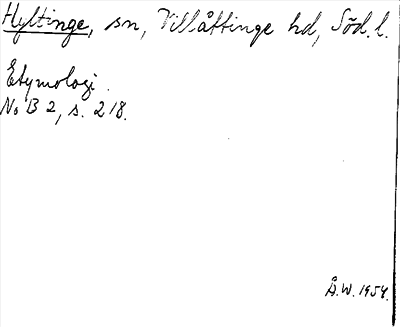 Hyltinge, sn, Villåttinge hd, Söd. l.
Etymologi.
No B 2, s. 218.
Å.W. 1954.